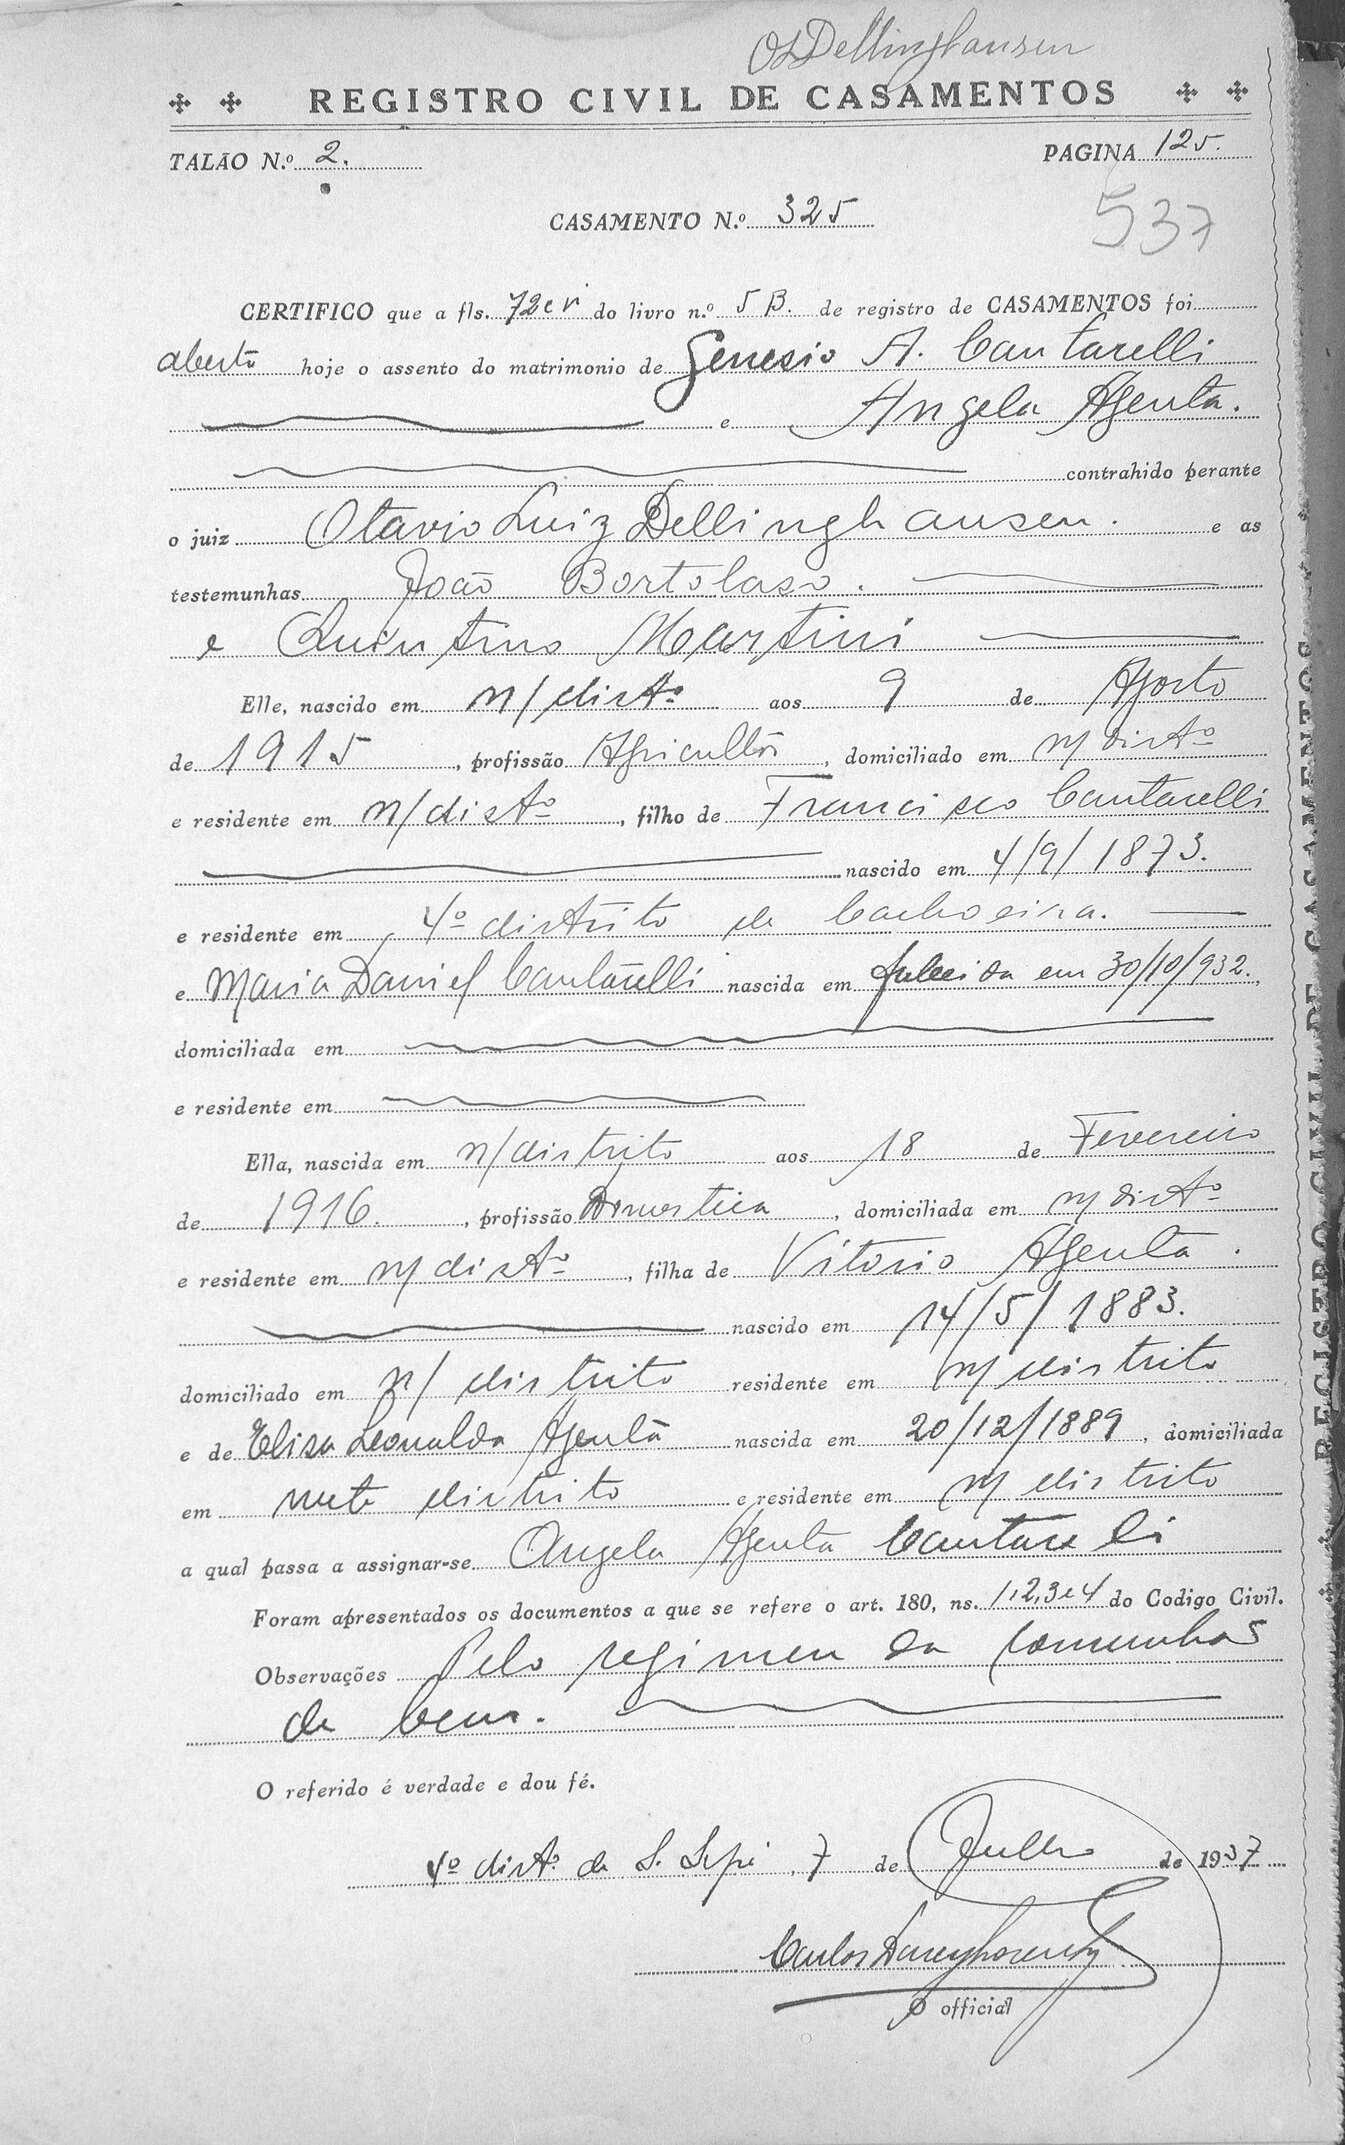 OLDellinghausen
REGISTRO CIVIL DE CASAMENTOS
TALÃO N.º 2. PAGINA 125.
537
CASAMENTO N.º 325
CERTIFICO que a fls. 72 e v do livro n.º 5 B. de registro de CASAMENTOS foi
aberto hoje o assento do matrimonio de Genesio A. Cantarelli
e Angela Agenta.
contrahido perante
o juiz Otavio Luiz Dellinghausen. e as
testemunhas João Bortolaso.
e Quintino Martini
Elle, nascido em n/distº aos 9 de Agosto
de 1915, profissão Agricultôr, domiciliado em n/distº
e residente em n/distº, filho de Francisco Cantarelli
nascido em 4/9/1873.
e residente em 4º distrito de Cachoeira.
e Maria Daniel Cantarelli nascida em falecida em 30/10/932.
domiciliada em
e residente em
Ella, nascida em n/distrito aos 18 de Fevereiro
de 1916., profissão Domestica, domiciliada em n/distº
e residente em n/distº, filha de Vitorio Agenta.
nascido em 14/5/1883.
domiciliado em n/distrito residente em n/distrito
e de Elisa Leonalda Agenta nascida em 20/12/1889, domiciliada
em neste distrito e residente em n/distrito
a qual passa a assignar-se Angela Agenta Cantarelli
Foram apresentados os documentos a que se refere o art. 180, ns. 1,2,3 e 4 do Codigo Civil.
Observações Pelo regimen da comunhão
de bens.
O referido é verdade e dou fé.
4º distº de S. Sepé, 7 de Julho de 1937
Carlos
O official
REGISTRO CIVIL DE CASAMENTOS